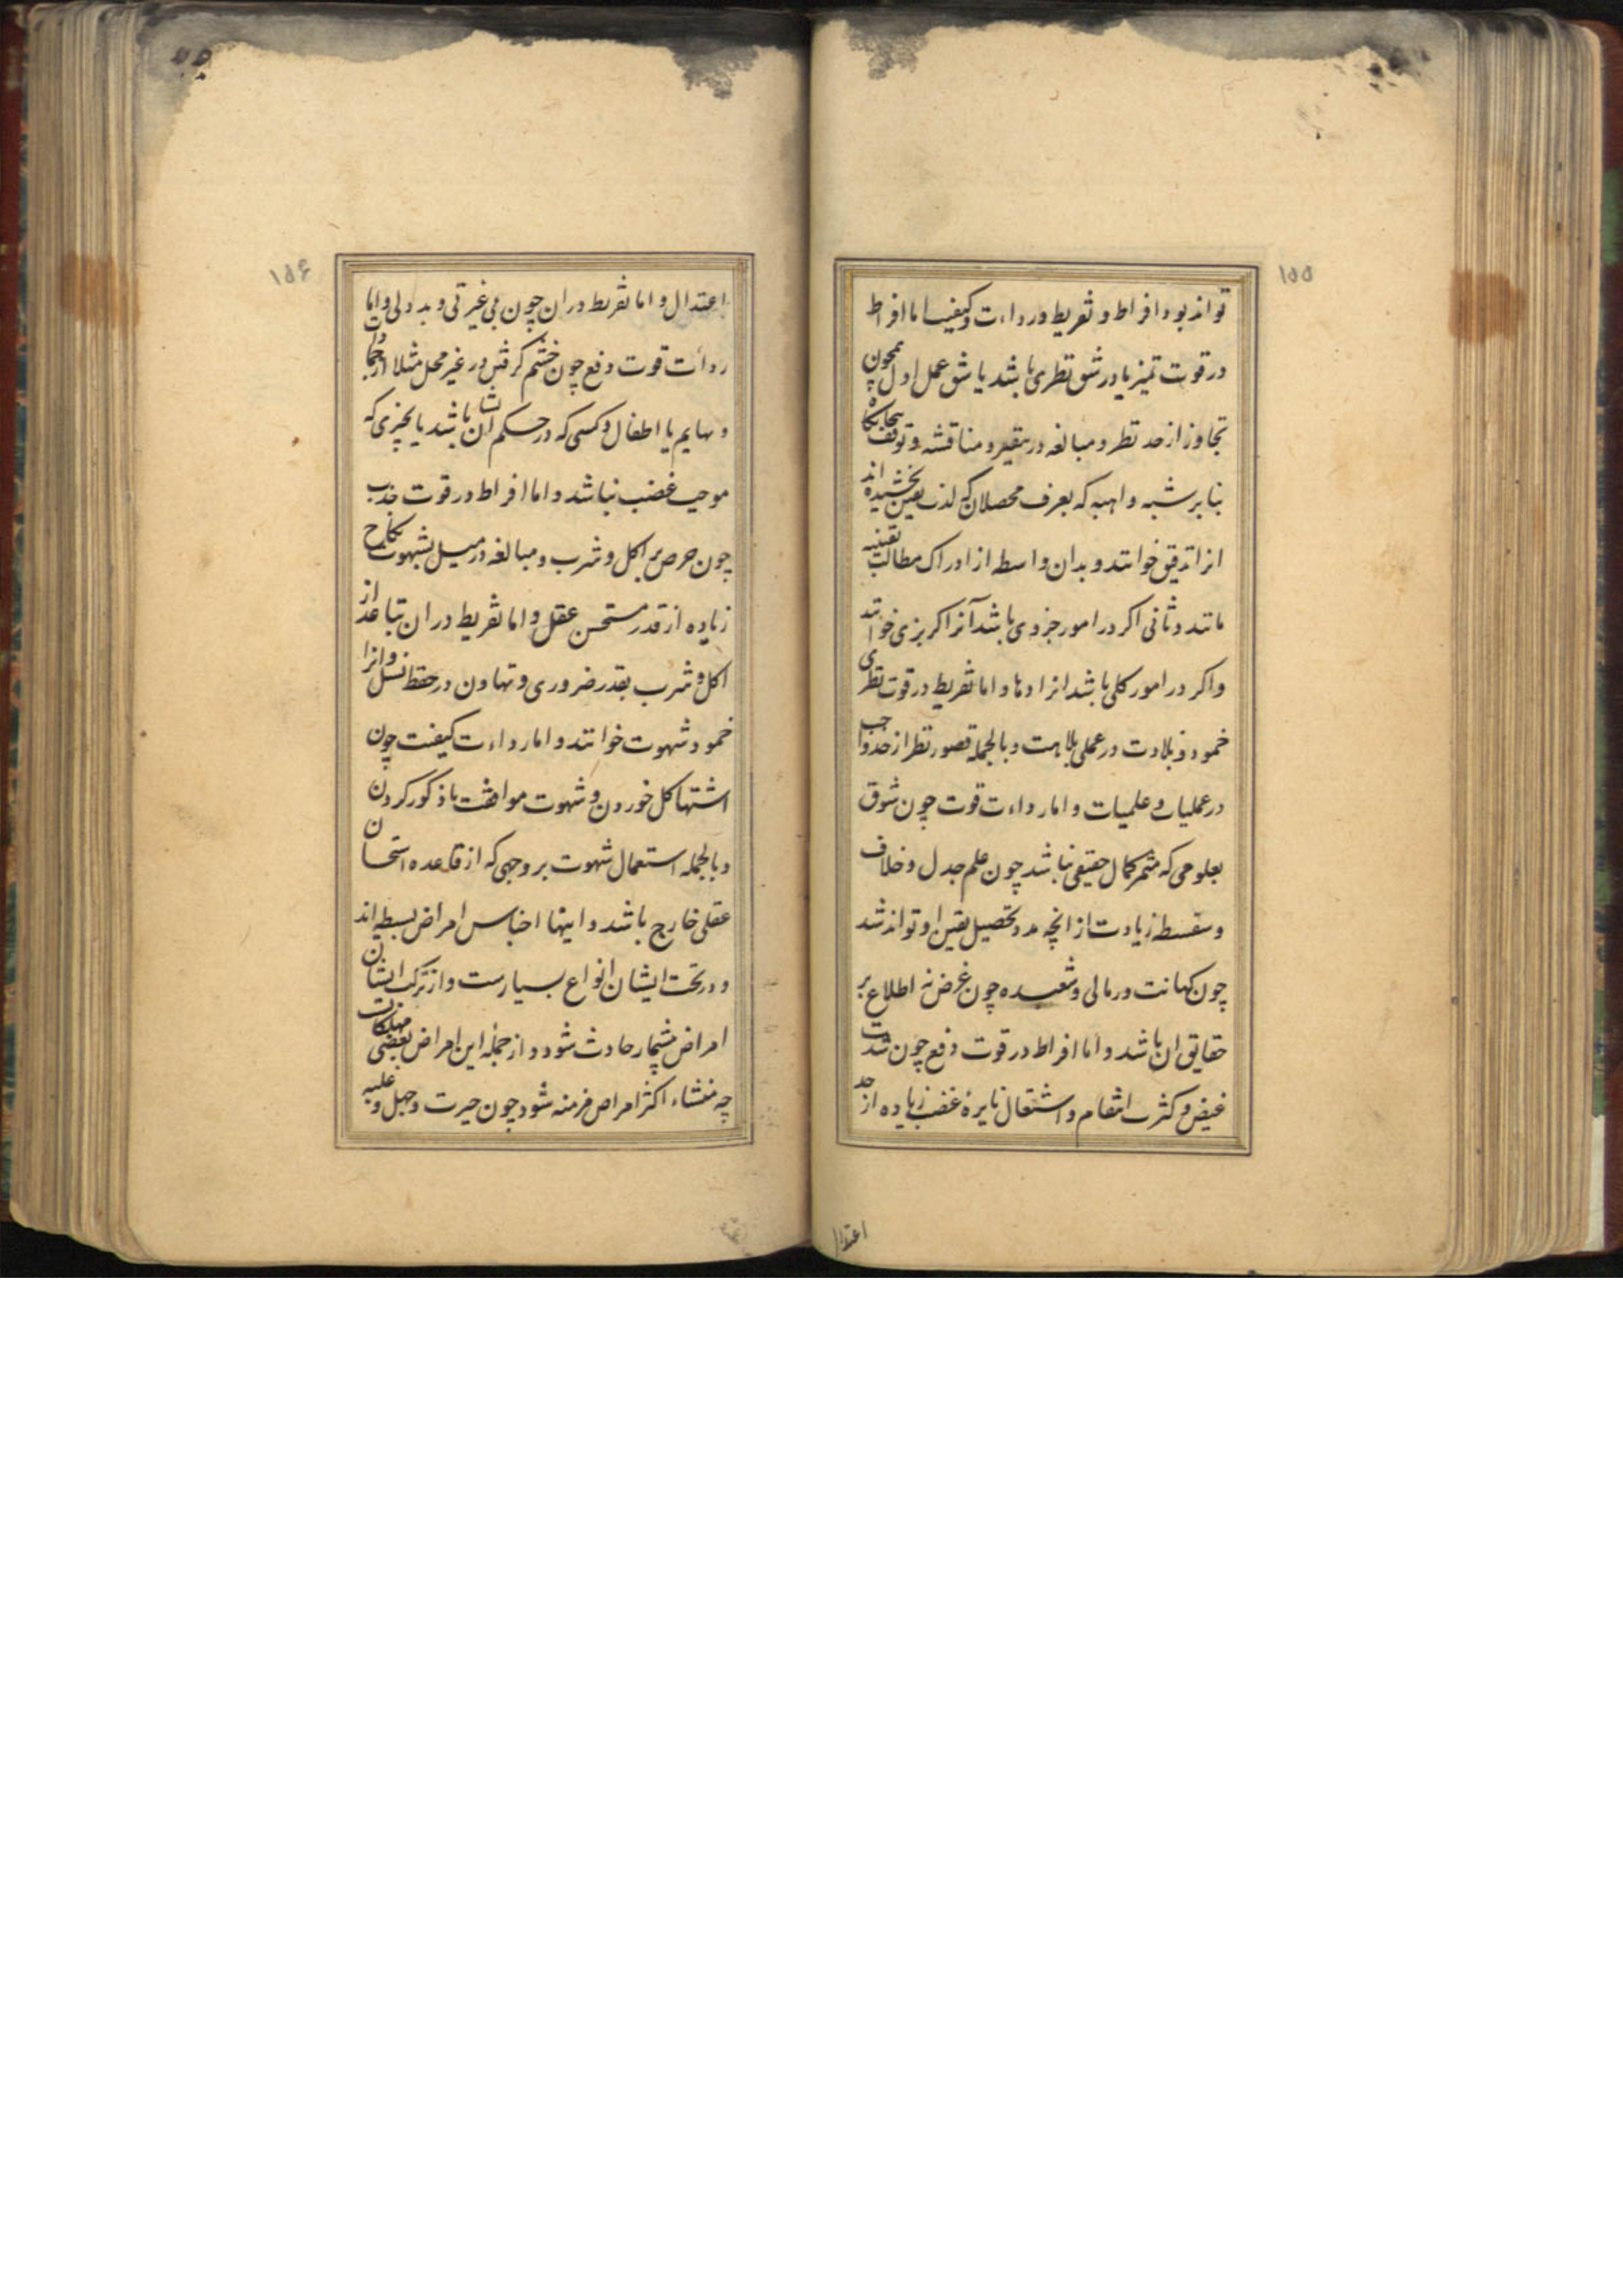 ۱۵۵
تواند بود افراط و تفریط و رداءت کیفیت اما افراط
در قوت تمیز یا در شق نظری باشد یا شق عمل اول همچون
تجاوز از حد نظر و مبالغه در تنقیر و مناقشه و توقف بیجایگاه
بنا بر شبه واهیه که بعرف محصلان که لذت یقین نچشیده اند
انرا تدقیق خوانند و بدان واسطه از ادراک مطالب یقینیه
مانند و ثانی اکر در امور جزوی باشد آنرا کربزی خوانند
و اکر در امور کلی باشد انرا دها و اما تفریط در قوت نظری
خمود و بلادت در عملی بلاهت و بالجمله قصور نظر از حد واجب
در عملیات و علمیات و اما رداءت قوت چون شوق
بعلومی که مثمر کمال حقیقی نباشد چون علم جدل و خلاف
و سفسطه زیادت از انچه مدد تحصیل یقین او تواند شد
چون کهانت و رمالی و شعبده چون غرض نه اطلاع بر
حقایق ان باشد و اما افراط در قوت دفع چون شدت
غیض و کثرت انتقام و اشتعال نایرهٔ غضب زیاده از حد
اعتدال
۱۵۶
اعتدال و اما تفریط در ان چون بی غیرتی و بد دلی و اما
ردائت قوت دفع چون خشم کرفتن در غیر محل مثلا از جمادات
و بهایم یا اطفال و کسی که در حکم ایشان باشد یا بچیزی که
موجب غضب نباشد و اما افراط در قوت جذب
چون حرص بر اکل و شرب و مبالغه در میل بشهوت نکاح
زیاده از قدر مستحسن عقل و اما تفریط در ان تباعد از
اکل و شرب بقدر ضروری و تهاون در حفظ نسل و انرا
خمود شهوت خوانند و اما رداءت کیفیت چون
اشتها کل خوردن و شهوت مواقعت با ذکور کردن
و بالجمله استعمال شهوت بر وجهی که از قاعده استحسان
عقلی خارج باشد و اینها اجناس امراض بسیطه اند
و در تحت ایشان انواع بسیارست و از ترکب ایشان
امراض بیشمار حادث شود و از جمله این امراض بعضی مهلکات
چه منشاء اکثر امراض مزمنه شود چون حیرت و جهل و غلبه